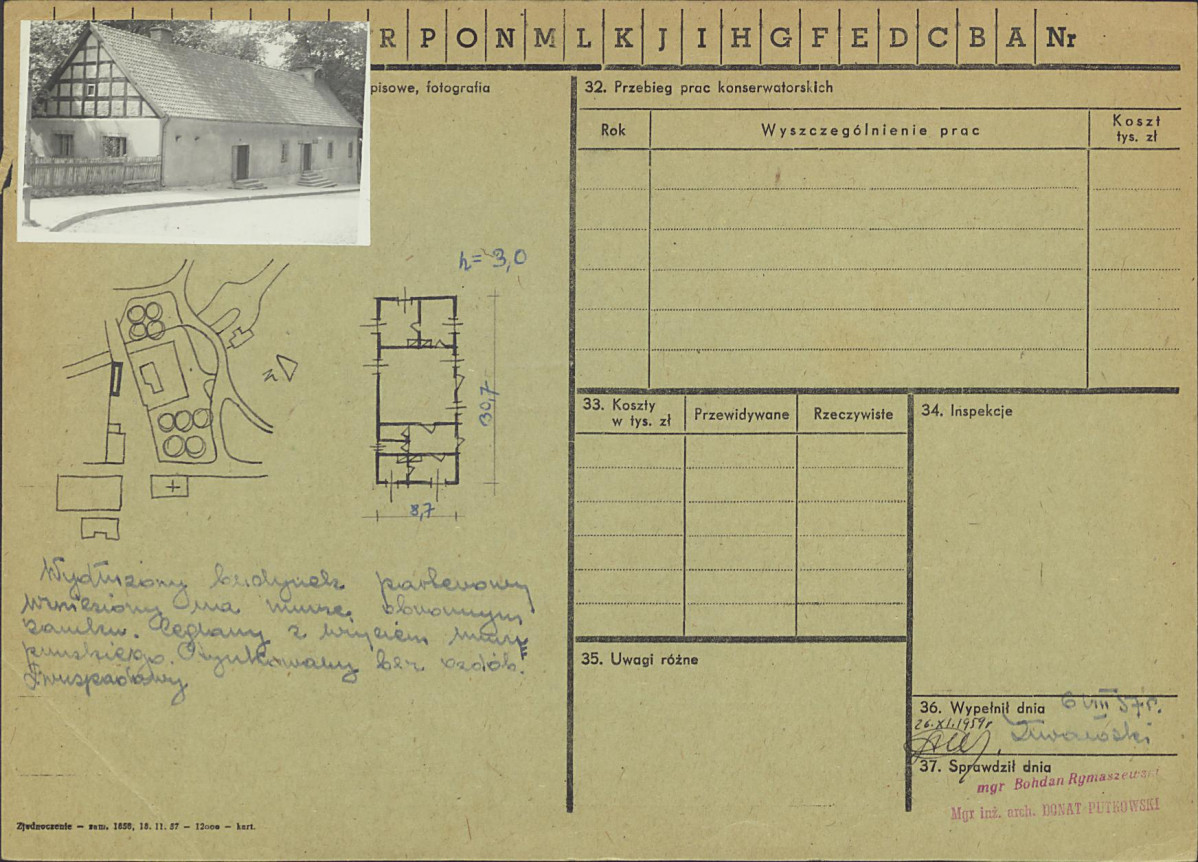 R P O N M L K J I H G F E D C B A Nr
pisowe, fotografia
32. Przebieg prac konserwatorskich
Rok
Wyszczególnienie prac
Koszt
tys. zł
h= 3,0
30,7
8,7
N
33. Koszty
w tys. zł
Przewidywane
Rzeczywiste
34. Inspekcje
Wydłużony budynek parterowy
wzniesiony na murze obronnym
zamku. Ceglany z użyciem muru
pruskiego. Otynkowany bez ozdób.
Dwuspadowy
35. Uwagi różne
36. Wypełnił dnia 6 VIII 57 r.
26.XI.1959r
37. Sprawdził dnia
mgr Bohdan Rymaszewski
Mgr inż. arch. DONAT PUTKOWSKI
Zjednoczenie — zam. 1656, 18. 11. 57 — 12000 — kart.